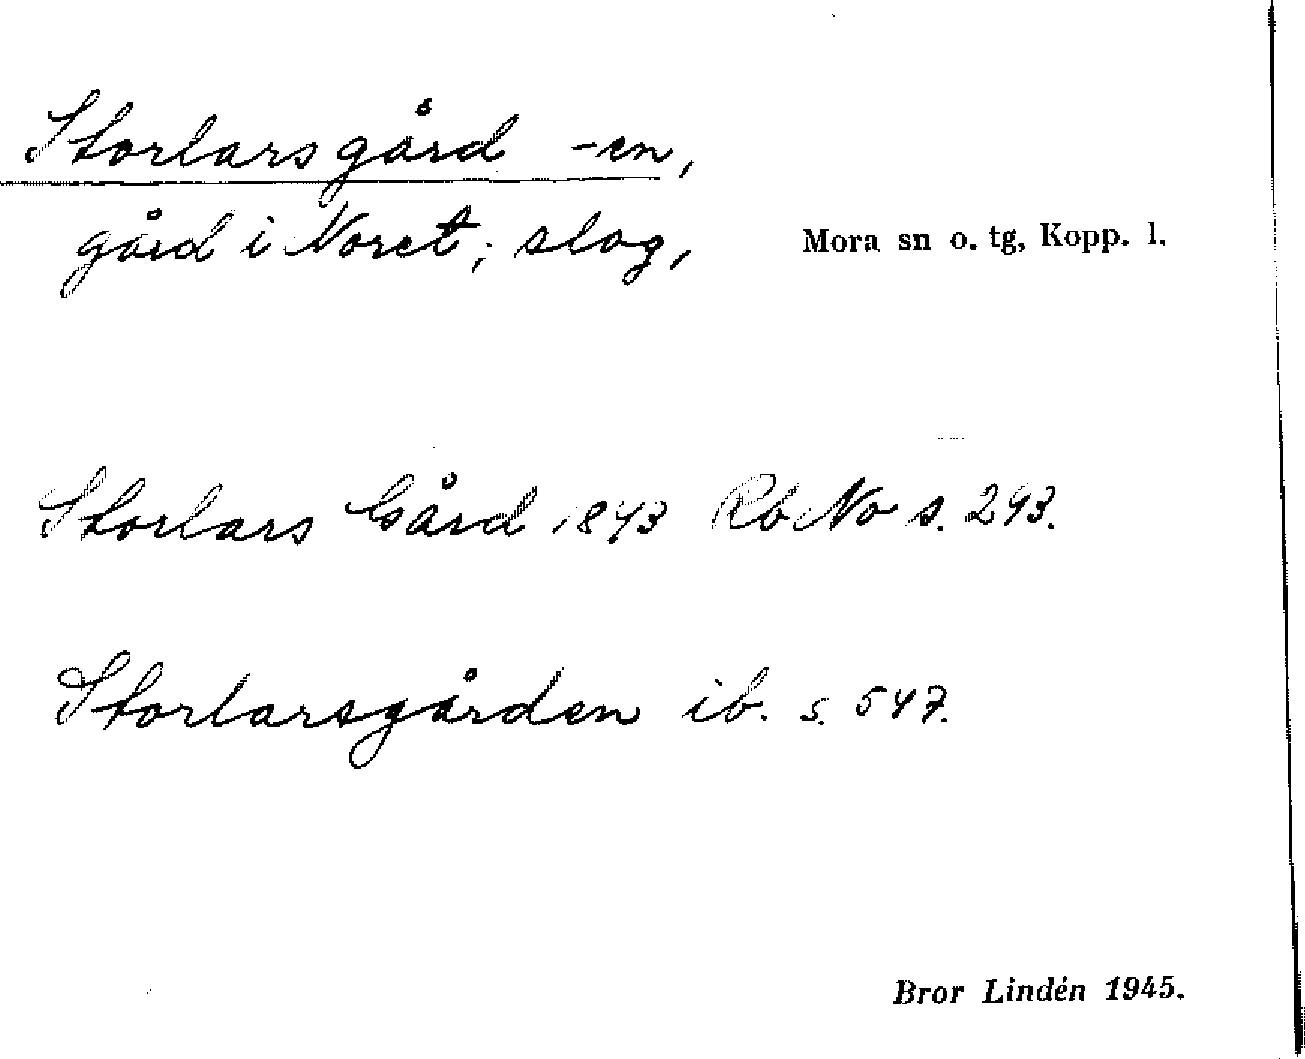 Storlarsgård -en,
gård i Noret; slog,
Mora sn o. tg, Kopp. l.
Storlars Gård 1843 Rb No s. 293.
Storlarsgården ib. s. 547.
Bror Lindén 1945.